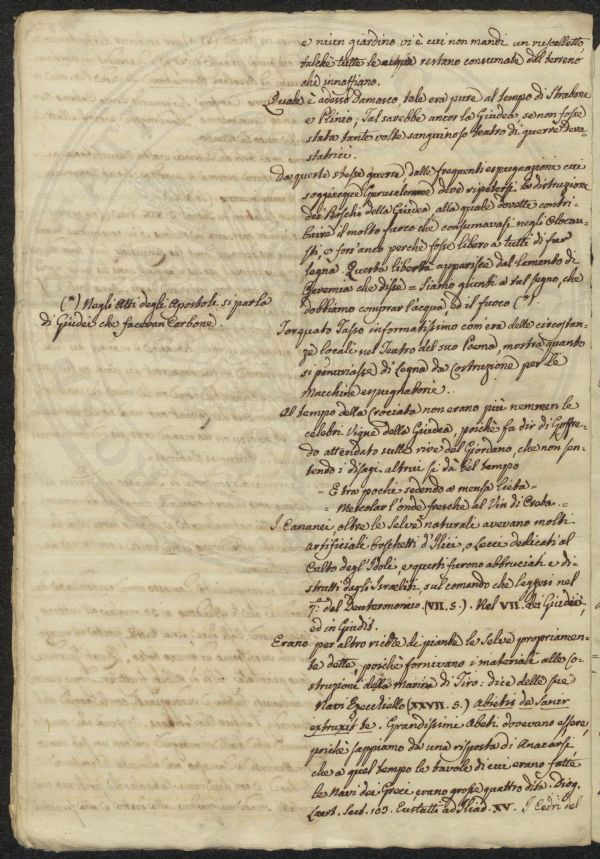 e niun giardino vi è cui non mandi un ruscelletto,
talche tutte le acque restano consumate dal terreno
che innaffiano.
Quale è adesso Damasco, tale era pure al tempo di Strabone
e Plinio; Tal sarebbe ancor la Giudea, se non fosse
stata tante volte sanguinoso teatro di guerre deva-
statrici.
Da queste stesse guerre, dalle frequenti espugnazioni cui
soggiacque Gerusalemme deve ripetersi la distruzione
dei Boschi della Giudea, alla quale dovette contri-
buire il molto fuoco che consumavasi negli Olocau-
sti, e fors'anco perche fosse libero a tutti di far
legna. Questa libertà apparisce dal lamento di
Geremia che disse = Siamo giunti a tal segno, che
dobbiamo comprar l'acqua, ed il fuoco (*)
(*) Negli Atti degli Apostoli si parla
di Giudei che facevan Carbone.
Torquato Tasso informatissimo com'era delle circostan-
ze locali nel Teatro del suo Poema, mostra quanto
si penuriasse di Legna da Costruzione per le
Macchine espugnatorie.
Al tempo della Crociata non erano più nemmen le
celebri Vigne della Giudea, poichè fa dir di Goffre-
do attendato sulle rive del Giordano, che non sen-
tendo i disagi altrui si dà bel tempo
= E tra pochi sedendo a mensa lieta =
= Mescolar l'onde fresche al Vin di Creta. =
I Cananei, oltre le Selve naturali avevano molti
artificiali boschetti d'Ilici, o Lecci dedicati al
Culto degl'Idoli, e questi furono abbruciati e di-
strutti dagli Israeliti, sul comando che leggesi nel
7.° del Deuteronomio (VII. 5.) Nel VII. dei Giudici,
ed in Giudit.
Erano per altro ricche di piante le Selve propriamen-
te dette, poichè fornivano i materiali alle Co-
struzioni della marina di Tiro: dice delle sue
Navi Ezecchiello (XXVII. 5.) Abietis de Sanir
extruxit te. Grandissimi Abeti dovevano essere,
poichè sappiamo da una risposta di Anacarsi,
che a quel tempo le tavole di cui erano fatte
le Navi dei Greci, erano grosse quattro dita. Diog.
Laert. Sect. 103. Eustatt. ad Iliad. XV. I Cedri del